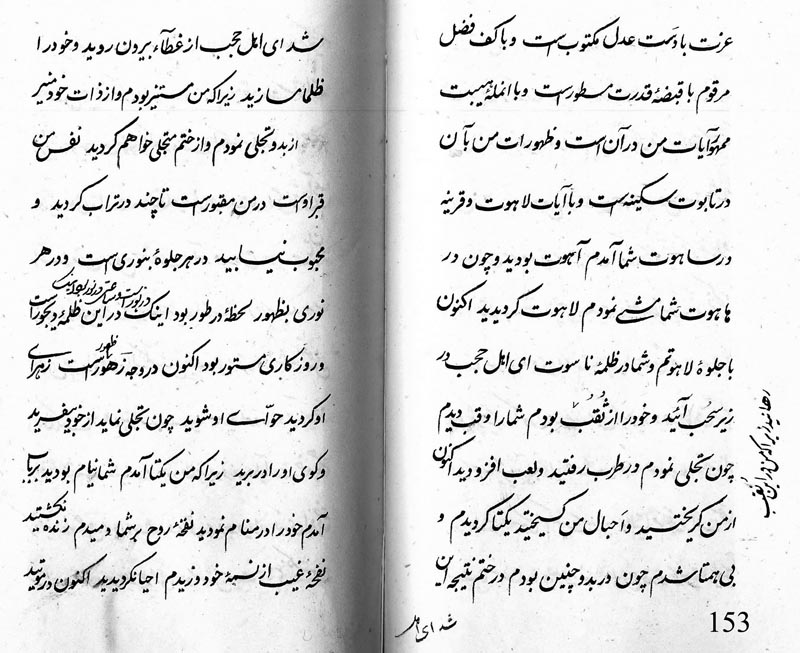 عزت با دست عدل مکتوب است و با کف فضل
مرقوم با قبضهٔ قدرت مسطور است و با انملهٔ هیبت
ممهور آیات من در آن است و ظهورات من با آن
در تابوت سکینه است و با آیات لاهوت و قرینه
در ساهوت شما آمدم آهوت بودید و چون در
هاهوت شما نمودم لاهوت کردیدید اکنون
با جلوهٔ لاهوتم و شما در ظلمهٔ ناسوت ای اهل حجب در
زیر سحب آئید و خود را از ثقب بودم شما را وقب دیدم
چون تجلی نمودم در طرب رفتید و لعب افزودید اکنون
از من کریختید و احبال من کسیختید یکتا کردیدم و
بی همتا شدم چون در بدو چنین بودم در ختم نتیجه این
شد ای اهل
153
شد ای اهل حجب از غطاء بیرون روید و خود را
ظلما مسازید زیرا که من مستنیر بودم و از ذات خود منیر
از بدو تجلی نمودم و از ختم متجلی خواهم کردید نفس من
قبر او است در من مقبور است تا چند در تراب کردید و
محبوب نیابید در هر جلوهٔ بنوری است و در هر
نوری بظهور لحظهٔ در طور بود اینک در این ظلمهٔ دیجور است
و روزکاری مستور بود اکنون در وجه ظهور است زهرای
او کردید حوّای او شوید چون تجلی نماید از خود بپرید
و کوی او را در برید زیرا که من یکتا آمدم شما نیام بودید
آمدم خود را در منام نمودید نفخهٔ روح بر شما دمیدم زنده نکشتید
نفحهٔ غیب از نسبهٔ خود وزیدم احیا نکردیدید اکنون در